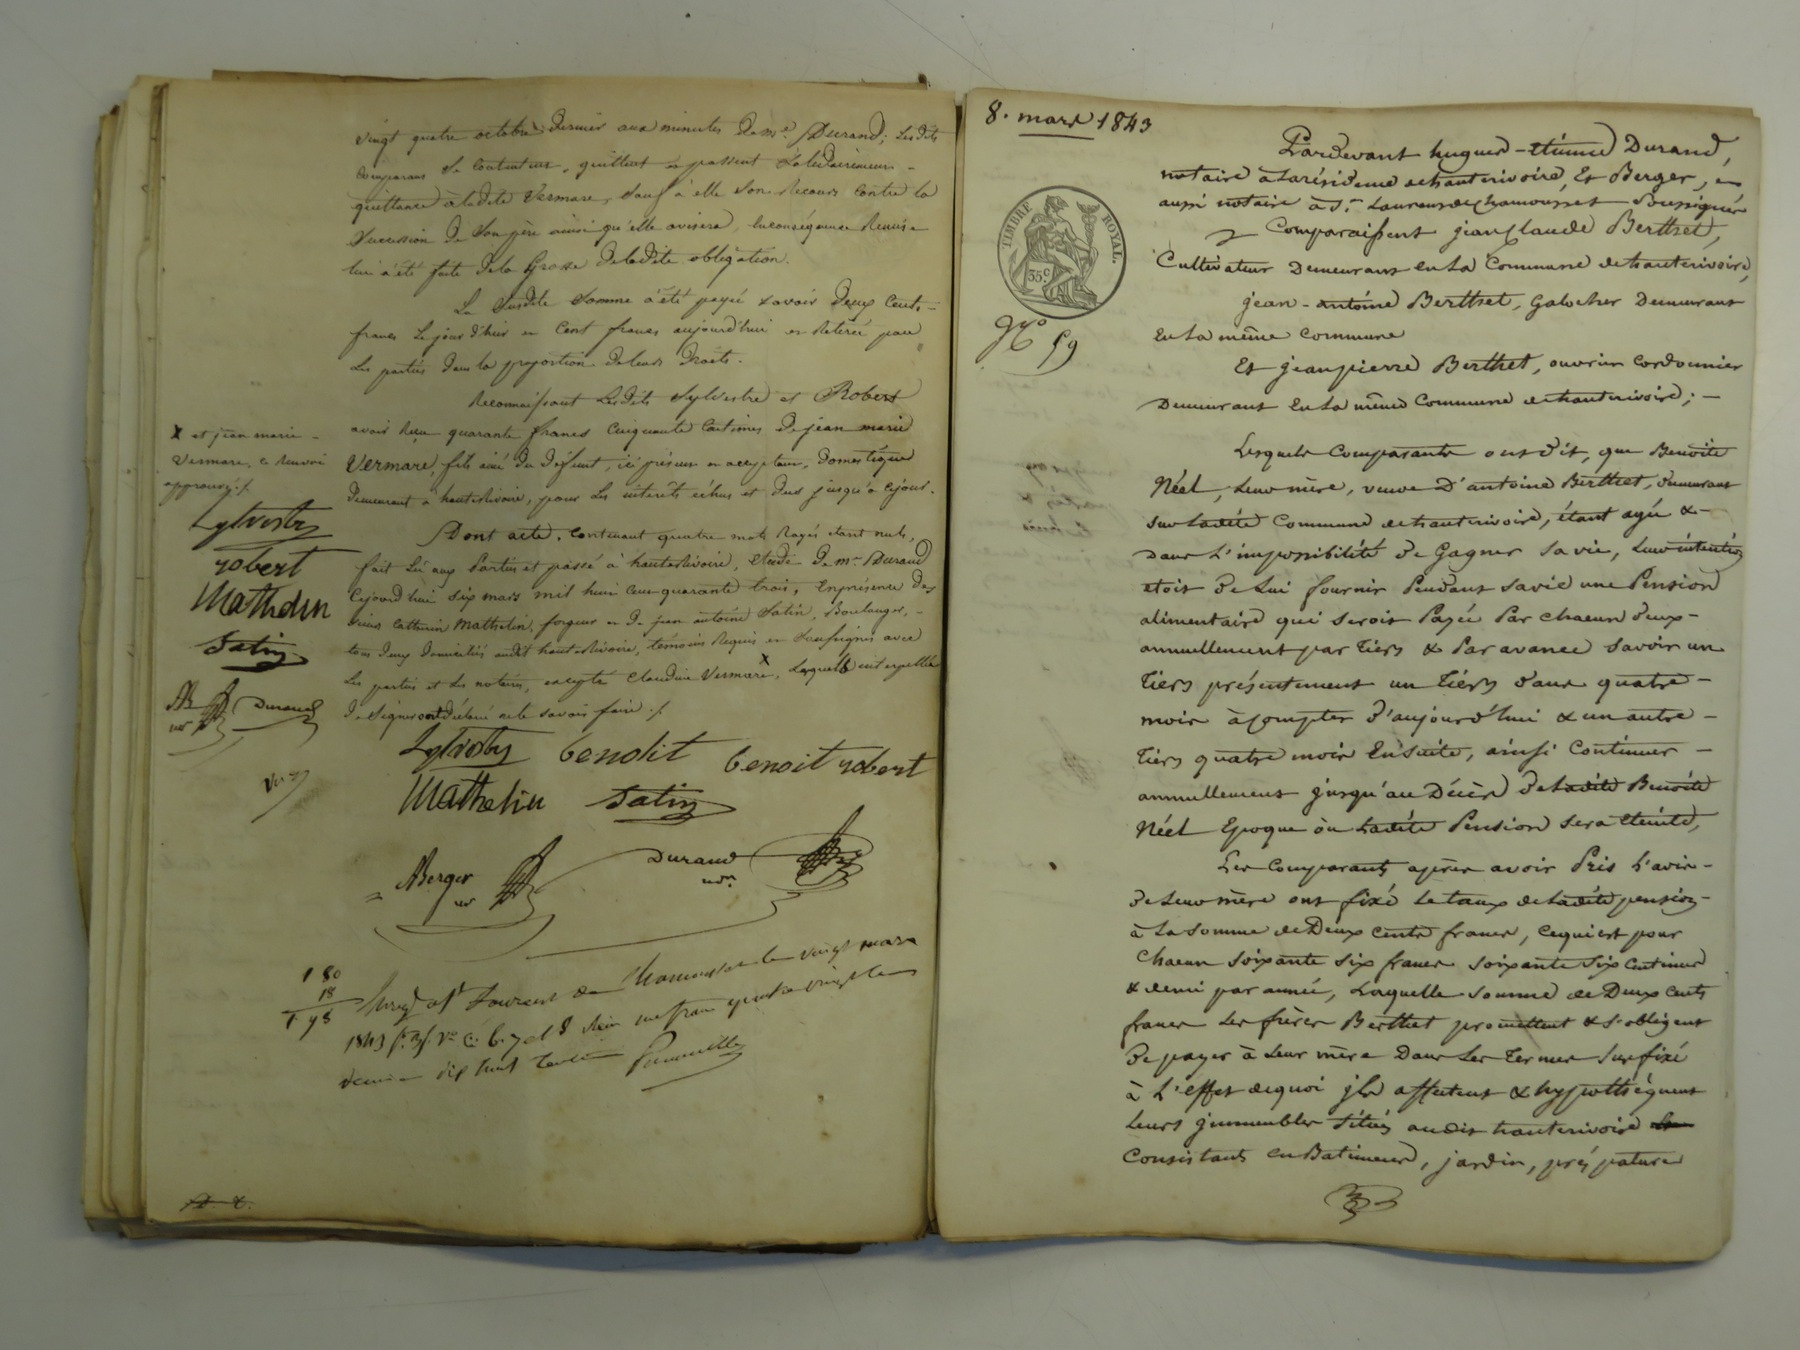 vingt quatre octobre dernier aux minutes de me Durand; Lesdits
comparans se contentent, quittent et passent
quittance à ladite Vermare, sauf à elle son recours contre la
succession de son père ainsi qu'elle avisera, en conséquence Remise
lui a été faite de la Grosse de ladite obligation.
La susdite somme a été payée savoir deux cents
francs le jour d'hier et cent francs aujourd'hui et Retirée par
Les parties dans la proportion de leurs droits.
Reconnaissant Lesdits Sylvestre et Robert
avoir Reçu quarante francs cinquante centimes de jean marie
Vermare, fils ainé du défunt, ici présent et acceptant, domestique
demeurant à hauterivoire, pour Les interêts échus et dus jusqu'à ce jour.
Dont acte, contenant quatre mots Rayés étant nuls,
fait Lu aux Parties et passé à hauterivoire, Etude de mr. Durand
Cejourd'hui six mars mil huit cent quarante trois, En présence des
sieurs Catherin Mathelin, forgeur et de jean antoine Satin, Boulanger,
tous deux domiciliés audit hauterivoire, témoins Requis et soussignés avec
Les parties et les notaires, excepté Claudine Vermare X, Laquelle interpellée
de signer ont déclaré ne le savoir faire ./.
X et jean marie
Vermare, ce Renvoi
approuvé ./.
Sylvestre
robert
Mathelin
Satin
AB
nre
Durand
Sylvestre benoit benoit robert
Mathelin Satin
ABerger
nre
Durand
nre
1 80
18
1 98
Enregé à St Laurent de Chamousset le vingt mars
1843 fo. Vo C. 6. 7 et 8 Reçu un franc quatre vingts
décime dix huit centimes
8. mars 1843
TIMBRE ROYAL.
35 c.
No 59
Pardevant hugues-étienne Durand,
notaire à la résidence de hauterivoire, Et Berger,
aussi notaire à St. Laurent de chamousset Soussignés
Comparaissent jean Claude Berthet,
Cultivateur Demeurant En La Commune de hauterivoire,
jean-antoine Berthet, Galocher Demeurant
En La même Commune
Et jean pierre Berthet, ouvrier Cordonnier
Demeurant En La même Commune de hauterivoire; —
Lesquels Comparants ont dit, que Benoîte
Néel, Leur mère, veuve D'antoine Berthet, demeurant
sur Ladite Commune de hauterivoire, étant agée &
dans L'impossibilité de Gagner sa vie, Leur intention
étoit de Lui fournir Pendant sa vie une Pension
alimentaire qui seroit Payée Par chacun d'eux
annuellement par Tiers & Par avance Savoir un
Tiers présentement un Tiers dans quatre
mois à compter d'aujourd'hui & un autre
Tiers quatre mois Ensuite, ainsi Continuer
annuellement jusqu'au Décès de Ladite Benoîte
Néel Epoque où Ladite Pension sera éteinte,
Les Comparants après avoir Pris L'avis
de Leur mère ont fixé Le taux de Ladite pension
à La Somme de Deux Cents francs, Cequi est pour
Chacun Soixante six francs soixante six Centimes
& demi par année, Laquelle Somme de Deux Cents
francs Les frères Berthet promettent & s'obligent
De payer à Leur mère Dans Les Termes Sus fixé
à L'effet dequoi jls affectent & hypothéquent
Leurs jmmeubles Situés audit hauterivoire
Consistants En Batiments, jardin, prés pature